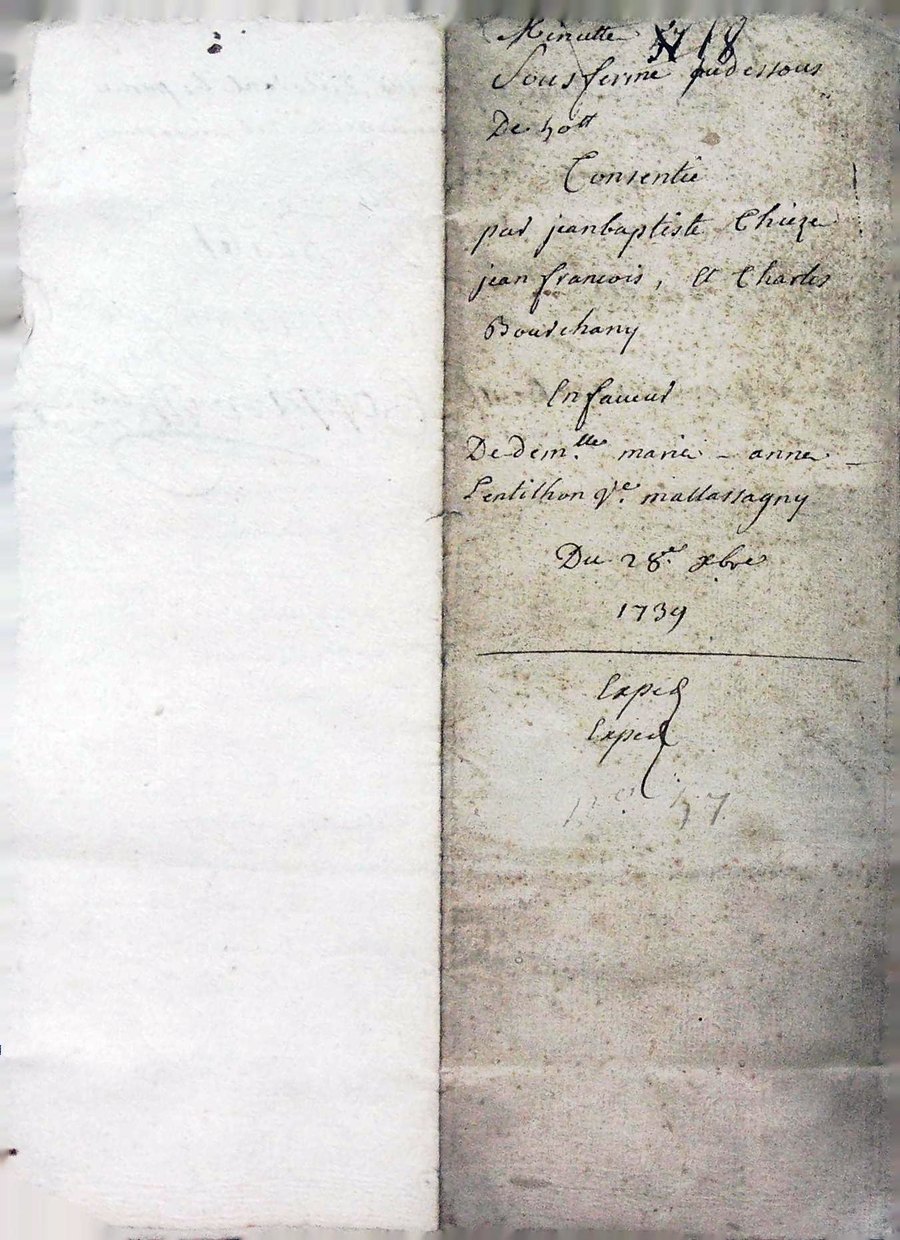 Minutte N 18
Sousferme audessous
De 40ᵗᵗ
Consentie
par jeanbaptiste Chieze
jean francois, et Charles
Bourchany
En faveur
De demᵉˡˡᵉ marie - anne
Lentilhon vᵉ. mallassagny
Du 28ᵉ xbre
1739
Exped
Exped